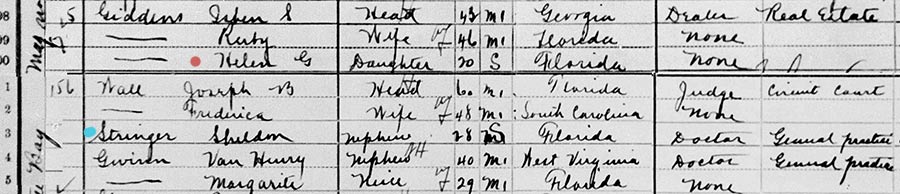 98 5 Giddens Isben S Head 42 M1 Georgia Dealer Real Estate
99 —— Ruby Wife 46 M1 Florida None
00 —— Helen G Daughter 20 S Florida None
1 156 Wall Joseph B Head 60 M1 Florida Judge Circuit Court
2 —— Frederica Wife 48 M1 South Carolina None
3 Stringer Sheldon nephew 28 S Florida Doctor General practice
4 Gwinn Van Henry nephew 40 M1 West Virginia Doctor General practice
5 —— Margarite Neice 29 M1 Florida None